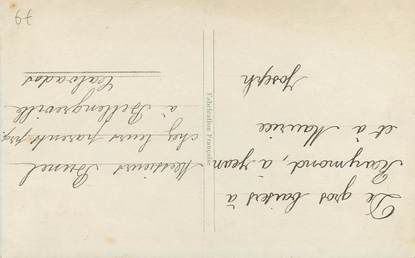 De gros baisers à
Raymond, à Jean
et à Maurice
Joseph
Fabrication Française
Messieurs Brunel
chez leurs parents
à Bellengreville
Calvados
79